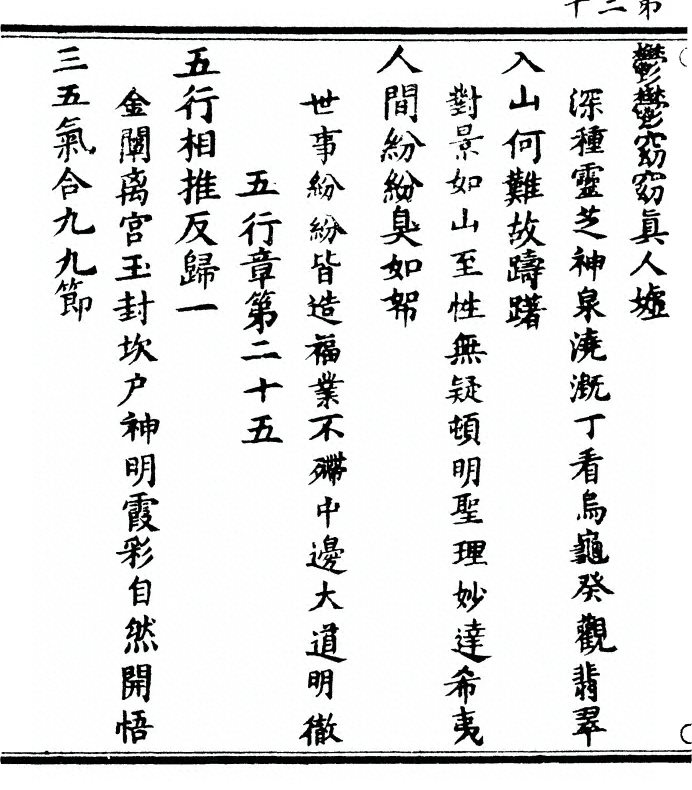 第二十
鬱鬱窈窈真人墟
深種靈芝神泉澆溉丁看烏龜癸觀翡翠
入山何難故躊躇
對景如山至性無疑頓明聖理妙達希夷
人間紛紛臭如帤
世事紛紛皆造福業不滯中邊大道明徹
五行章第二十五
五行相推反歸一
金闕离宮玉封坎户神明霞彩自然開悟
三五氣合九九節